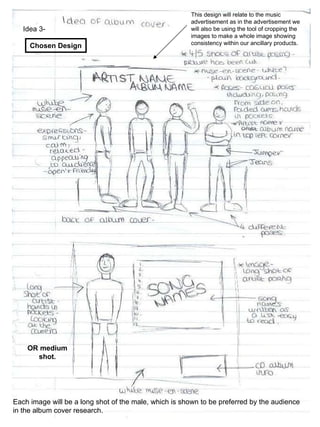 This design will relate to the music
advertisement as in the advertisement we
will also be using the tool of cropping the
images to make a whole image showing
consistency within our ancillary products.
Idea of album cover.
Idea 3-
Chosen Design
* 4/5 shots of artist posing -
picture has been cut.
* muse-en-scene - white?
- plain background.
ARTIST NAME
ALBUM NAME
* Poses - casual poses
including posing
from side on,
folded arms, hands
in pockets.
* Artist name &
album name
in top left corner
white
muse-en-
scene
expressions -
smirking,
calm,
relaxed -
appearing
to audience
- open & friendly
Jumper
Jeans
back of album cover -
4 different
poses.
Long
shot of
artist -
hands in
pockets -
looking
at the
camera
* Image -
long shot of
artist posing
SONG
NAMES
song
names
written as
a list - easy
to read.
OR medium
shot.
CD album
info
white muse-en-scene
Each image will be a long shot of the male, which is shown to be preferred by the audience
in the album cover research.